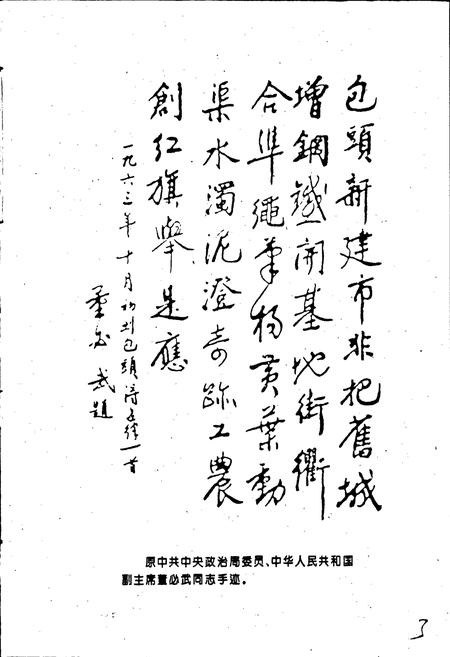 包頭新建市非把舊城
增鋼鐵開基地街衢
合準繩葉楊黃葉動
渠水濁泥澄奇跡工農
創紅旗舉是應
一九六三年十月初到包頭得五律一首
董必武題
原中共中央政治局委员、中华人民共和国
副主席董必武同志手迹。
3